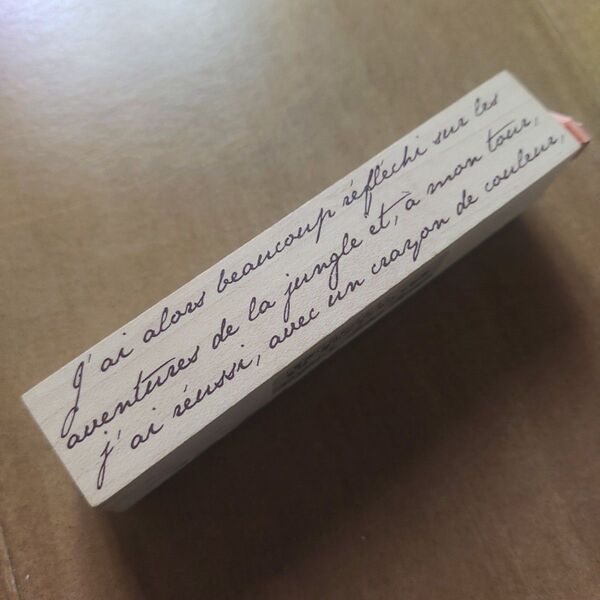 J'ai alors beaucoup réfléchi sur les
aventures de la jungle et, à mon tour,
j'ai réussi, avec un crayon de couleur,